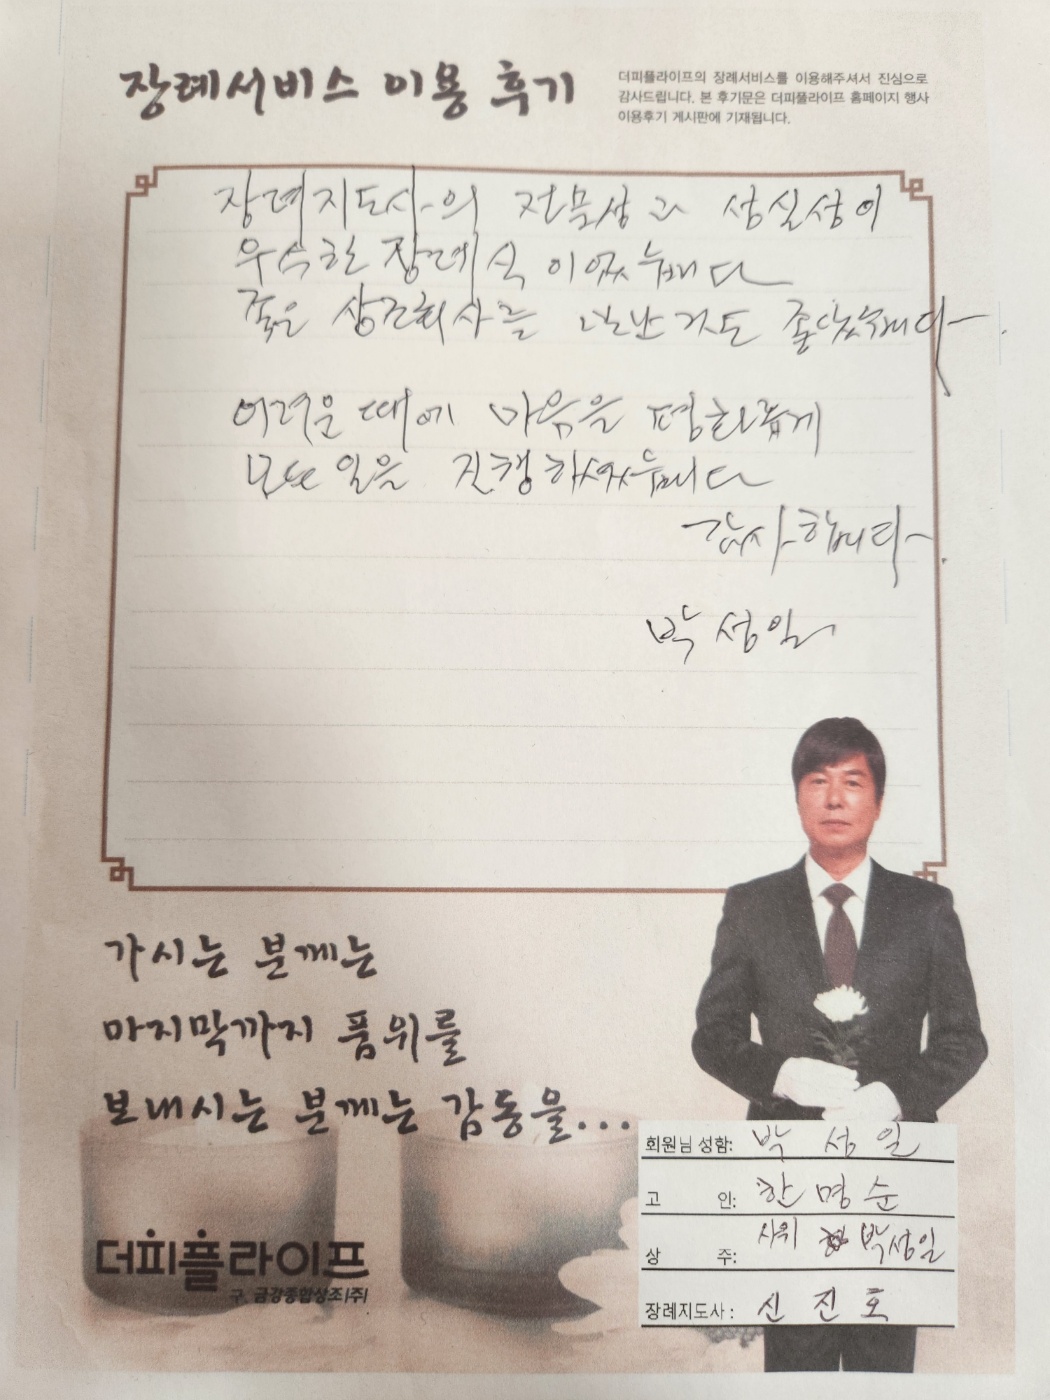 장례서비스 이용 후기
더피플라이프의 장례서비스를 이용해주셔서 진심으로
감사드립니다. 본 후기문은 더피플라이프 홈페이지 행사
이용후기 게시판에 기재됩니다.
장례지도사의 전문성과 성실성이
우수한 장례식이었습니다
좋은 상조회사를 만난것도 좋았습니다.
어려운 때에 마음을 평화롭게
모든 일을 진행하였습니다
감사합니다.
박성일
가시는 분께는
마지막까지 품위를
보내시는 분께는 감동을...
회원님 성함: 박 성 일
고 인: 한 명 순
상 주: 사위 박성일
장례지도사: 신 진 호
더피플라이프
구. 금강종합상조(주)